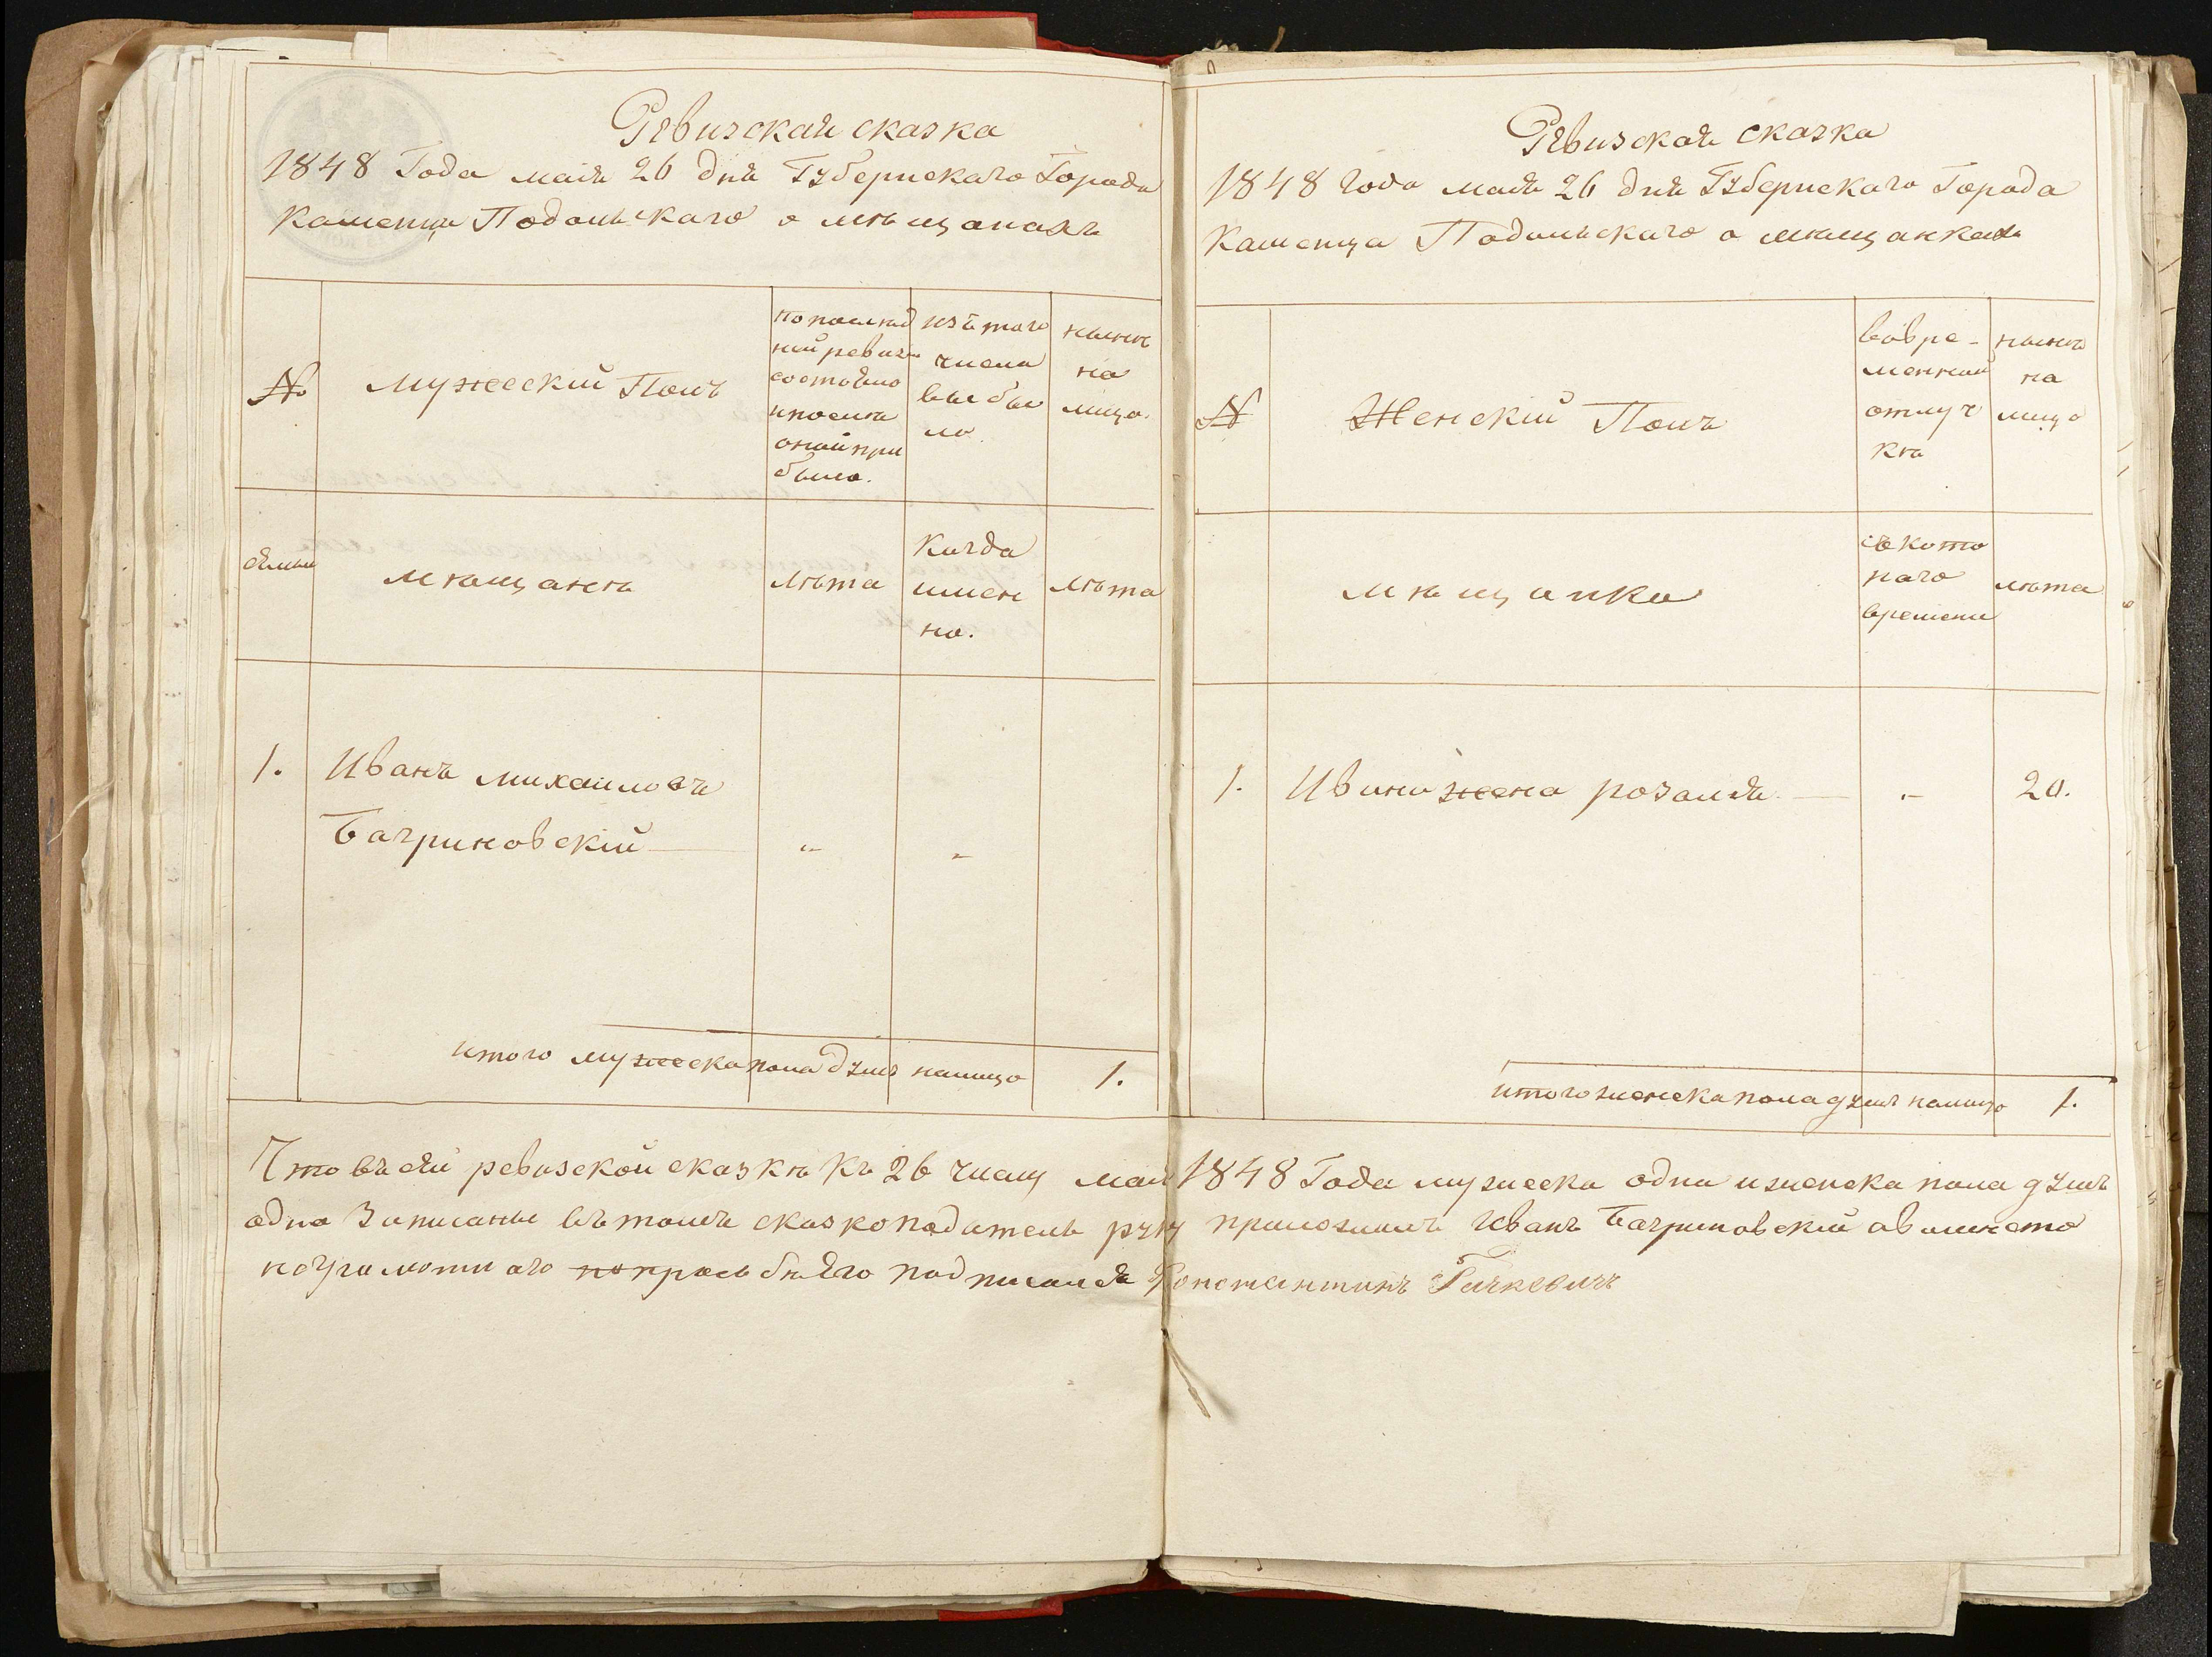 Ревизская сказка
1848 Года мая 26 дня Губернскаго Города
Каменца Подольскаго о мѣщанахъ
№
Мужескій Полъ
по послѣд
ней ревизіи
состояло
и послѣ
оной при
было.
изъ того
числа
выбы
ло
нынѣ
на
лицо.
семьи
мѣщане
лѣта
Когда
имен
но.
лѣта
1.
Иванъ михаиловъ
Багриновскій
итого мужеска пола душъ налицо 1.
Ревизская сказка
1848 года мая 26 дня Губернскаго Города
Каменца Подольскаго о мѣщанкахъ
№
Женскій Полъ
вовре-
менной
отлуч
кѣ
нынѣ
на
лицо
мѣщанки
съ кото
раго
времени
лѣта
1. Ивана жена розалія 20.
итого женска пола душъ налицо 1.
Что въ сей ревизской сказкѣ къ 26 числу мая 1848 Года мужеска одна и женска пола душъ
одна Записаны въ томъ сказкоподатель руку приложилъ Иванъ Багриновскій а вмѣсто
неграмотнаго по прозьбѣ его подписался Константинъ